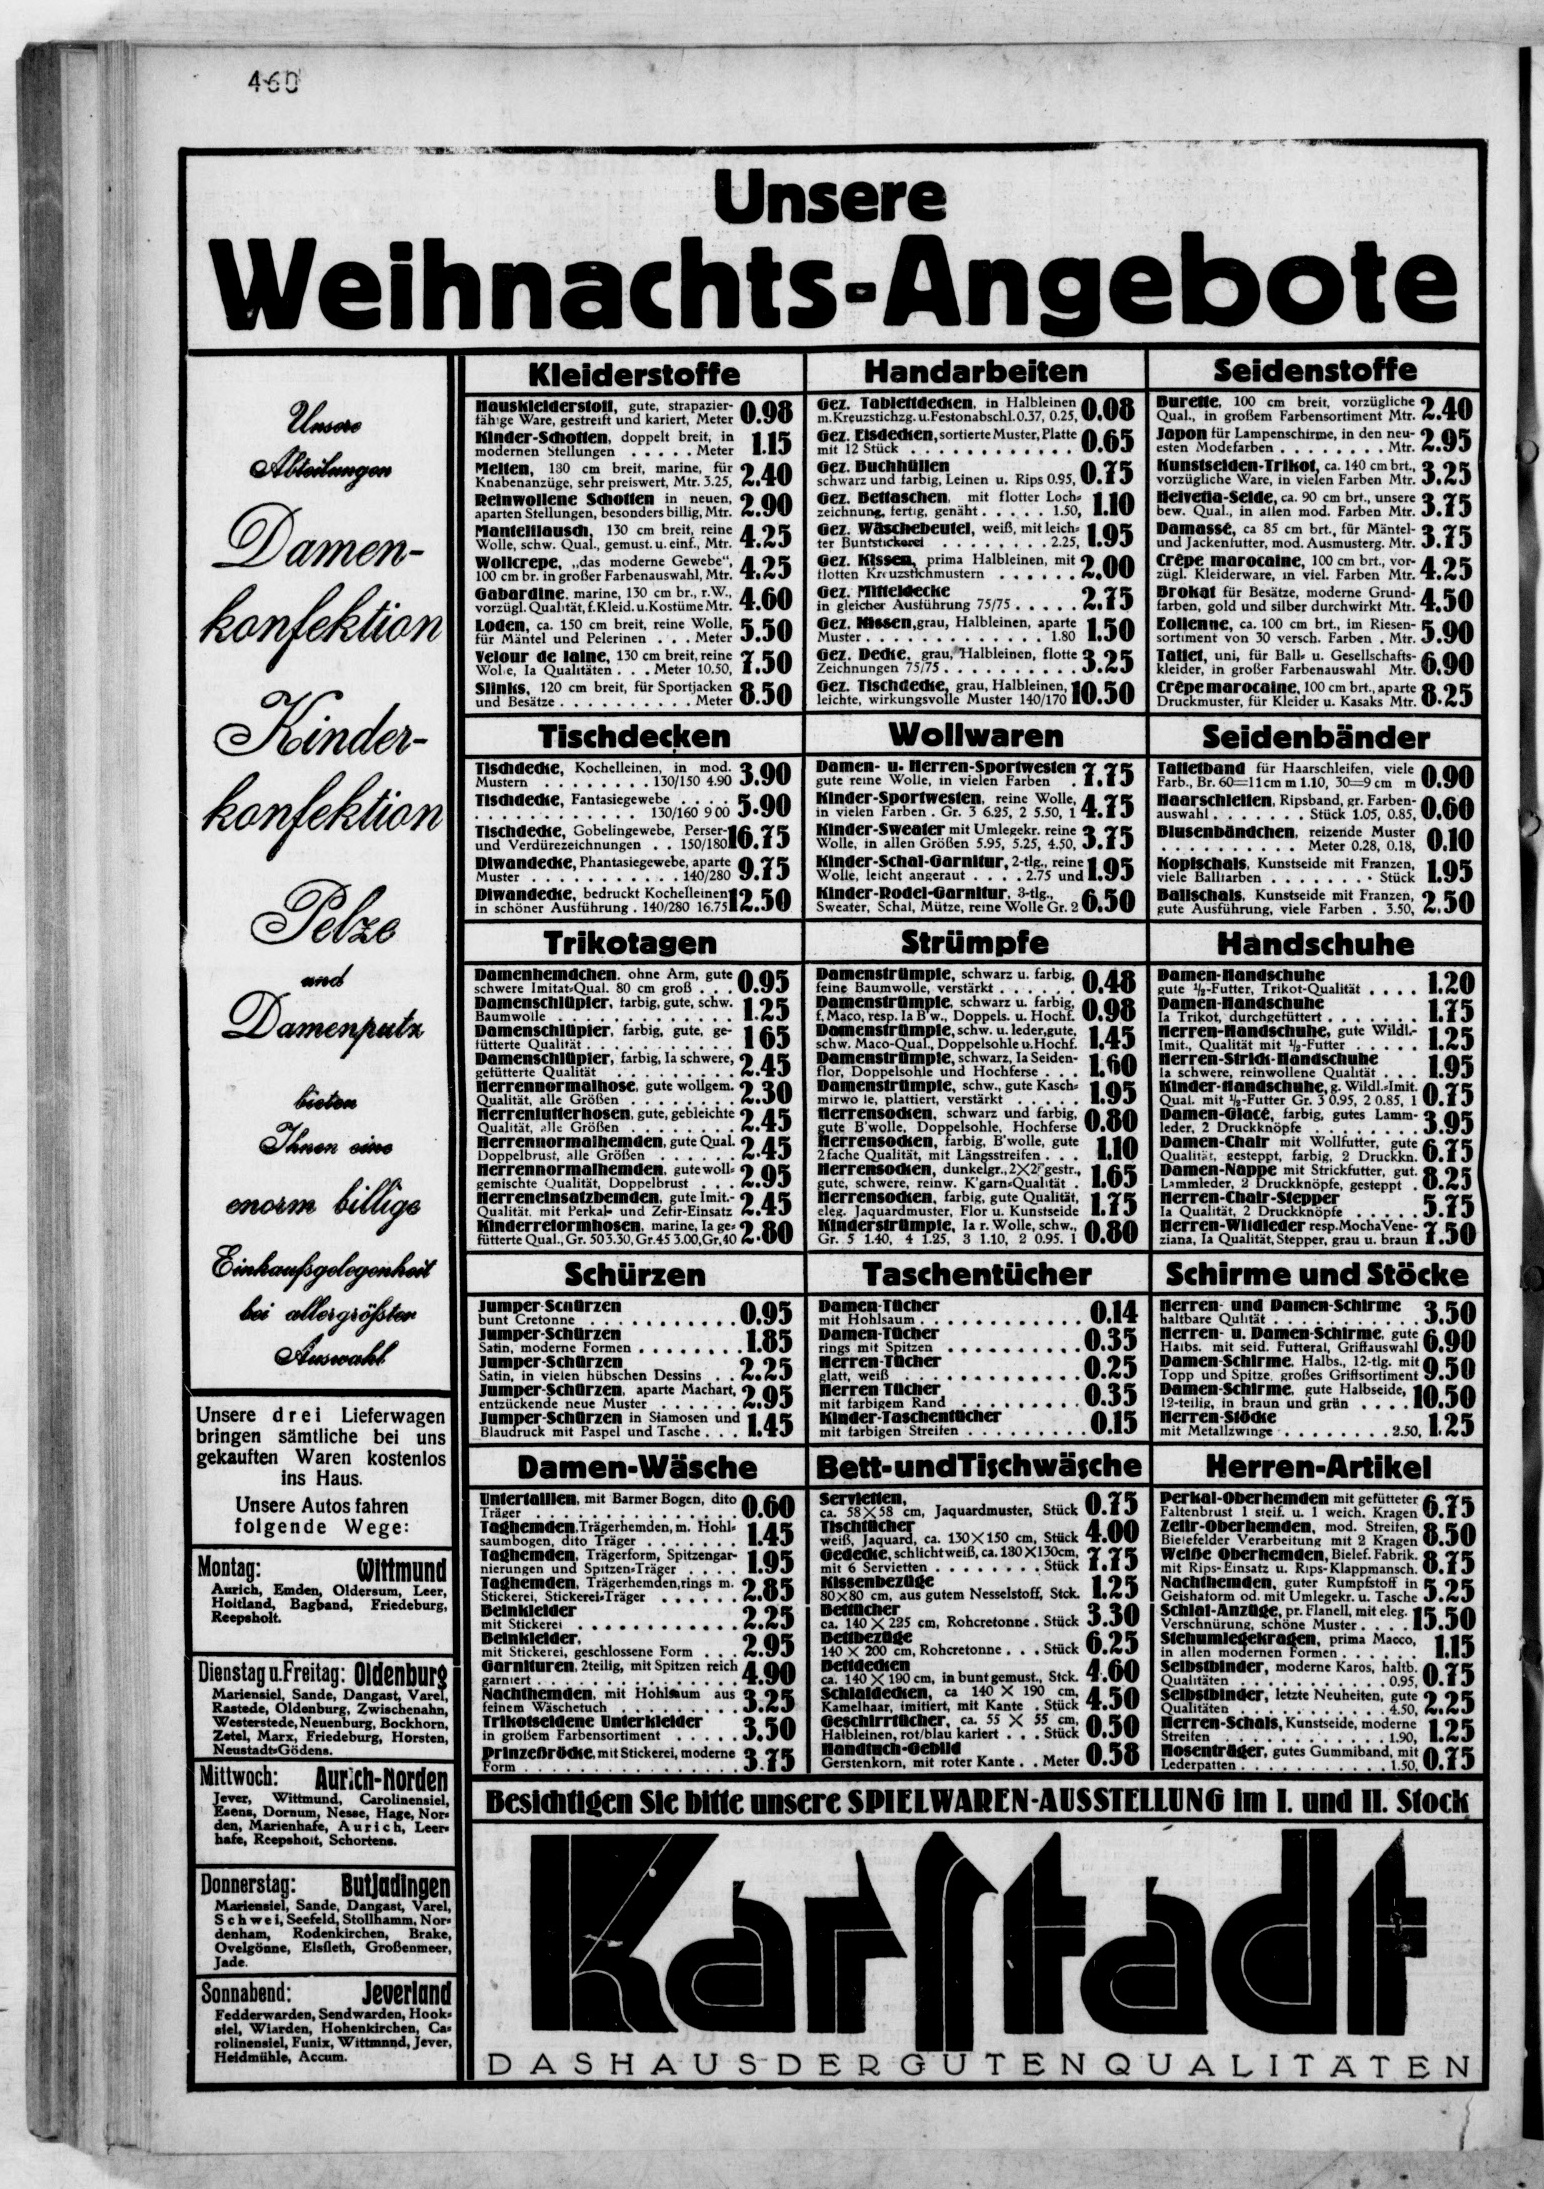 460
Unsere
Weihnachts-Angebote
Unsere
Abteilungen
Damen-
konfektion
Kinder-
konfektion
Pelze
und
Damenputz
bieten
Ihnen eine
enorm billige
Einkaufsgelegenheit
bei allergrößter
Auswahl
Unsere drei Lieferwagen
bringen sämtliche bei uns
gekauften Waren kostenlos
ins Haus.
Unsere Autos fahren
folgende Wege:
Montag: Wittmund
Aurich, Emden, Oldersum, Leer,
Holtland, Bagband, Friedeburg,
Reepsholt.
Dienstag u. Freitag: Oldenburg
Mariensiel, Sande, Dangast, Varel,
Rastede, Oldenburg, Zwischenahn,
Westerstede, Neuenburg, Bockhorn,
Zetel, Marx, Friedeburg, Horsten,
Neustadt-Gödens.
Mittwoch: Aurich-Norden
Jever, Wittmund, Carolinensiel,
Esens, Dornum, Nesse, Hage, Nor-
den, Marienhafe, Aurich, Leer-
hafe, Reepsholt, Schortens.
Donnerstag: Butjadingen
Mariensiel, Sande, Dangast, Varel,
Schwei, Seefeld, Stollhamm, Nor-
denham, Rodenkirchen, Brake,
Ovelgönne, Elsfleth, Großenmeer,
Jade.
Sonnabend: Jeverland
Fedderwarden, Sendwarden, Hook-
siel, Wiarden, Hohenkirchen, Ca-
rolinensiel, Funix, Wittmund, Jever,
Heidmühle, Accum.
Kleiderstoffe
Hauskleiderstoff, gute, strapazier-
fähige Ware, gestreift und kariert, Meter 0.98
Kinder-Schotten, doppelt breit, in
modernen Stellungen . . . . . Meter 1.15
Melten, 130 cm breit, marine, für
Knabenanzüge, sehr preiswert, Mtr. 3.25, 2.40
Reinwollene Schotten in neuen,
aparten Stellungen, besonders billig, Mtr. 2.90
Mantelflausch, 130 cm breit, reine
Wolle, schw. Qual., gemust. u. einf., Mtr. 4.25
Wollcrepe, „das moderne Gewebe“,
100 cm br. in großer Farbenauswahl, Mtr. 4.25
Gabardine, marine, 130 cm br., r.W.,
vorzügl. Qualität, f. Kleid. u. Kostüme Mtr. 4.60
Loden, ca. 150 cm breit, reine Wolle,
für Mäntel und Pelerinen . . . Meter 5.50
Velour de laine, 130 cm breit, reine
Wolle, Ia Qualitäten . . . Meter 10.50, 7.50
Slinks, 120 cm breit, für Sportjacken
und Besätze . . . . . . . . . . Meter 8.50
Handarbeiten
Gez. Tablettdecken, in Halbleinen
m. Kreuzstichzg. u. Festonabschl. 0.37, 0.25, 0.08
Gez. Eisdecken, sortierte Muster, Platte
mit 12 Stück . . . . . . . . . . . 0.65
Gez. Buchhüllen
schwarz und farbig, Leinen u. Rips 0.95, 0.75
Gez. Bettaschen, mit flotter Loch-
zeichnung, fertig, genäht . . . . . 1.50, 1.10
Gez. Wäschebeutel, weiß, mit leich-
ter Buntstickerei . . . . . . . . . 2.25, 1.95
Gez. Kissen, prima Halbleinen, mit
flotten Kreuzstichmustern . . . . . . 2.00
Gez. Mitteldecke
in gleicher Ausführung 75/75 . . . . . 2.75
Gez. Kissen, grau, Halbleinen, aparte
Muster . . . . . . . . . . . . . 1.80 1.50
Gez. Decke, grau, Halbleinen, flotte
Zeichnungen 75/75 . . . . . . . . . . 3.25
Gez. Tischdecke, grau, Halbleinen,
leichte, wirkungsvolle Muster 140/170 10.50
Seidenstoffe
Burette, 100 cm breit, vorzügliche
Qual., in großem Farbensortiment Mtr. 2.40
Japon für Lampenschirme, in den neu-
esten Modefarben . . . . . . . . Mtr. 2.95
Kunstseiden-Trikot, ca. 140 cm brt.,
vorzügliche Ware, in vielen Farben Mtr. 3.25
Helvetia-Seide, ca. 90 cm brt., unsere
bew. Qual., in allen mod. Farben Mtr. 3.75
Damassé, ca 85 cm brt., für Mäntel-
und Jackenfutter, mod. Ausmusterg. Mtr. 3.75
Crêpe marocaine, 100 cm brt., vor-
zügl. Kleiderware, in viel. Farben Mtr. 4.25
Brokat für Besätze, moderne Grund-
farben, gold und silber durchwirkt Mtr. 4.50
Eolienne, ca. 100 cm brt., im Riesen-
sortiment von 30 versch. Farben . Mtr. 5.90
Taffet, uni, für Ball- u. Gesellschafts-
kleider, in großer Farbenauswahl Mtr. 6.90
Crêpe marocaine, 100 cm brt., aparte
Druckmuster, für Kleider u. Kasaks Mtr. 8.25
Tischdecken
Tischdecke, Kochelleinen, in mod.
Mustern . . . . . . . . 130/150 4.90 3.90
Tischdecke, Fantasiegewebe . . . .
. . . . . . . . . . . . . 130/160 9 00 5.90
Tischdecke, Gobelingewebe, Perser-
und Verdürezeichnungen . . 150/180 16.75
Diwandecke, Phantasiegewebe, aparte
Muster . . . . . . . . . . . 140/280 9.75
Diwandecke, bedruckt Kochelleinen
in schöner Ausführung . 140/280 16.75 12.50
Wollwaren
Damen- u. Herren-Sportwesten
gute reine Wolle, in vielen Farben . 7.75
Kinder-Sportwesten, reine Wolle,
in vielen Farben . Gr. 3 6.25, 2 5.50, 1 4.75
Kinder-Sweater mit Umlegekr. reine
Wolle, in allen Größen 5.95, 5.25, 4.50, 3.75
Kinder-Schal-Garnitur, 2-tlg., reine
Wolle, leicht angeraut . . . . 2.75 und 1.95
Kinder-Rodel-Garnitur, 3-tlg.,
Sweater, Schal, Mütze, reine Wolle Gr. 2 6.50
Seidenbänder
Taffetband für Haarschleifen, viele
Farb., Br. 60=11 cm m 1.10, 30=9 cm m 0.90
Haarschleifen, Ripsband, gr. Farben-
auswahl . . . . . . . . Stück 1.05, 0.85, 0.60
Blusenbändchen, reizende Muster
. . . . . . . . . . Meter 0.28, 0.18, 0.10
Kopfschals, Kunstseide mit Franzen,
viele Ballfarben . . . . . . . . Stück 1.95
Ballschals, Kunstseide mit Franzen,
gute Ausführung, viele Farben . 3.50, 2.50
Trikotagen
Damenhemdchen, ohne Arm, gute
schwere Imitat-Qual. 80 cm groß . . . 0.95
Damenschlüpfer, farbig, gute, schw.
Baumwolle . . . . . . . . . . . . 1.25
Damenschlüpfer, farbig, gute, ge-
fütterte Qualität . . . . . . . . . . 1 65
Damenschlüpfer, farbig, Ia schwere,
gefütterte Qualität . . . . . . . . . 2.45
Herrennormalhose, gute wollgem.
Qualität, alle Größen . . . . . . . . 2.30
Herrenfutterhosen, gute, gebleichte
Qualität, alle Größen . . . . . . . . 2.45
Herrennormalhemden, gute Qual.
Doppelbrust, alle Größen . . . . . . 2.45
Herrennormalhemden, gute woll-
gemischte Qualität, Doppelbrust . . . 2.95
Herreneinsatzhemden, gute Imit.-
Qualität, mit Perkal- und Zefir-Einsatz 2.45
Kinderreformhosen, marine, Ia ge-
fütterte Qual., Gr. 50 3.30, Gr. 45 3.00, Gr. 40 2.80
Strümpfe
Damenstrümpfe, schwarz u. farbig,
feine Baumwolle, verstärkt . . . . . . 0.48
Damenstrümpfe, schwarz u. farbig,
f. Maco, resp. Ia B'w., Doppels. u. Hochf. 0.98
Damenstrümpfe, schw. u. leder, gute,
schw. Maco-Qual., Doppelsohle u. Hochf. 1.45
Damenstrümpfe, schwarz, Ia Seiden-
flor, Doppelsohle und Hochferse . . . 1.60
Damenstrümpfe, schw., gute Kasch-
mirwo le, plattiert, verstärkt . . . . . 1.95
Herrensocken, schwarz und farbig,
gute B'wolle, Doppelsohle, Hochferse 0.80
Herrensocken, farbig, B'wolle, gute
2fache Qualität, mit Längsstreifen . . . 1.10
Herrensocken, dunkelgr., 2X2 gestr.,
gute, schwere, reinw. K'garn-Qualität . 1.65
Herrensocken, farbig, gute Qualität,
eleg. Jaquardmuster, Flor u. Kunstseide 1.75
Kinderstrümpfe, Ia r. Wolle, schw.,
Gr. 5 1.40, 4 1.25, 3 1.10, 2 0.95. 1 0.80
Handschuhe
Damen-Handschuhe
gute ½-Futter, Trikot-Qualität . . . . 1.20
Damen-Handschuhe
Ia Trikot, durchgefüttert . . . . . . . 1.75
Herren-Handschuhe, gute Wildl.-
Imit., Qualität mit ½-Futter . . . . . 1.25
Herren-Strick-Handschuhe
Ia schwere, reinwollene Qualität . . . 1.95
Kinder-Handschuhe, g. Wildl.-Imit.
Qual. mit ½-Futter Gr. 3 0.95, 2 0.85, 1 0.75
Damen-Glacé, farbig, gutes Lamm-
leder, 2 Druckknöpfe . . . . . . . . 3.95
Damen-Chair mit Wollfutter, gute
Qualität, gesteppt, farbig, 2 Druckkn. 6.75
Damen-Nappe mit Strickfutter, gut.
Lammleder, 2 Druckknöpfe, gesteppt . 8.25
Herren-Chair-Stepper
Ia Qualität, 2 Druckknöpfe . . . . . 5.75
Herren-Wildleder resp. Mocha Vene-
ziana, Ia Qualität, Stepper, grau u. braun 7.50
Schürzen
Jumper-Schürzen
bunt Cretonne . . . . . . . . . . . 0.95
Jumper-Schürzen
Satin, moderne Formen . . . . . . . . 1.85
Jumper-Schürzen
Satin, in vielen hübschen Dessins . . 2.25
Jumper-Schürzen, aparte Machart,
entzückende neue Muster . . . . . . 2.95
Jumper-Schürzen in Siamosen und
Blaudruck mit Paspel und Tasche . . . 1.45
Taschentücher
Damen-Tücher
mit Hohlsaum . . . . . . . . . . . . 0.14
Damen-Tücher
rings mit Spitzen . . . . . . . . . . 0.35
Herren-Tücher
glatt, weiß . . . . . . . . . . . . . 0.25
Herren Tücher
mit farbigem Rand . . . . . . . . . 0.35
Kinder-Taschentücher
mit farbigen Streifen . . . . . . . . . 0.15
Schirme und Stöcke
Herren- und Damen-Schirme
haltbare Qulität . . . . . . . . . . . 3.50
Herren- u. Damen-Schirme, gute
Halbs. mit seid. Futteral, Griffauswahl 6.90
Damen-Schirme, Halbs., 12-tlg. mit
Topp und Spitze, großes Griffsortiment 9.50
Damen-Schirme, gute Halbseide,
12-teilig, in braun und grün . . . . 10.50
Herren-Stöcke
mit Metallzwinge . . . . . . . . 2.50, 1.25
Damen-Wäsche
Untertaillen, mit Barmer Bogen, dito
Träger . . . . . . . . . . . . . . 0.60
Taghemden, Trägerhemden, m. Hohl-
saumbogen, dito Träger . . . . . . . 1.45
Taghemden, Trägerform, Spitzengar-
nierungen und Spitzen-Träger . . . . 1.95
Taghemden, Trägerhemden, rings m.
Stickerei, Stickerei-Träger . . . . . . 2.85
Beinkleider
mit Stickerei . . . . . . . . . . . . 2.25
Beinkleider,
mit Stickerei, geschlossene Form . . . 2.95
Garnituren, 2teilig, mit Spitzen reich
garniert . . . . . . . . . . . . . . 4.90
Nachthemden, mit Hohlsaum aus
feinem Wäschetuch . . . . . . . . . 3.25
Trikotseidene Unterkleider
in großem Farbensortiment . . . . . 3.50
Prinzeßröcke, mit Stickerei, moderne
Form . . . . . . . . . . . . . . . 3.75
Bett- und Tischwäsche
Servietten,
ca. 58X58 cm, Jaquardmuster, Stück 0.75
Tischtücher
weiß, Jaquard, ca. 130X150 cm, Stück 4.00
Gedecke, schlicht weiß, ca. 130X130 cm,
mit 6 Servietten . . . . . . . . Stück 7.75
Kissenbezüge
80X80 cm, aus gutem Nesselstoff, Stck. 1.25
Bettücher
ca. 140 X 225 cm, Rohcretonne . Stück 3.30
Bettbezüge
140 X 200 cm, Rohcretonne . . . Stück 6.25
Bettdecken
ca. 140 X 190 cm, in bunt gemust., Stck. 4.60
Schlafdecken, ca 140 X 190 cm,
Kamelhaar, imitiert, mit Kante . Stück 4.50
Geschirrtücher, ca. 55 X 55 cm,
Halbleinen, rot/blau kariert . . . Stück 0.50
Handtuch-Gebild
Gerstenkorn, mit roter Kante . . Meter 0.58
Herren-Artikel
Perkal-Oberhemden mit gefütteter
Faltenbrust 1 steif. u. 1 weich. Kragen 6.75
Zefir-Oberhemden, mod. Streifen,
Bielefelder Verarbeitung mit 2 Kragen 8.50
Weiße Oberhemden, Bielef. Fabrik.
mit Rips-Einsatz u. Rips-Klappmansch. 8.75
Nachthemden, guter Rumpfstoff in
Geishaform od. mit Umlegekr. u. Tasche 5.25
Schlaf-Anzüge, pr. Flanell, mit eleg.
Verschnürung, schöne Muster . . . . 15.50
Stehumlegekragen, prima Macco,
in allen modernen Formen . . . . . 1.15
Selbstbinder, moderne Karos, haltb.
Qualitäten . . . . . . . . . . . 0.95, 0.75
Selbstbinder, letzte Neuheiten, gute
Qualitäten . . . . . . . . . . . 4.50, 2.25
Herren-Schals, Kunstseide, moderne
Streifen . . . . . . . . . . . . 1.90, 1.25
Hosenträger, gutes Gummiband, mit
Lederpatten . . . . . . . . . . . 1.50, 0.75
Besichtigen Sie bitte unsere SPIELWAREN-AUSSTELLUNG im I. und II. Stock
Karstadt
DAS HAUS DER GUTEN QUALITÄTEN